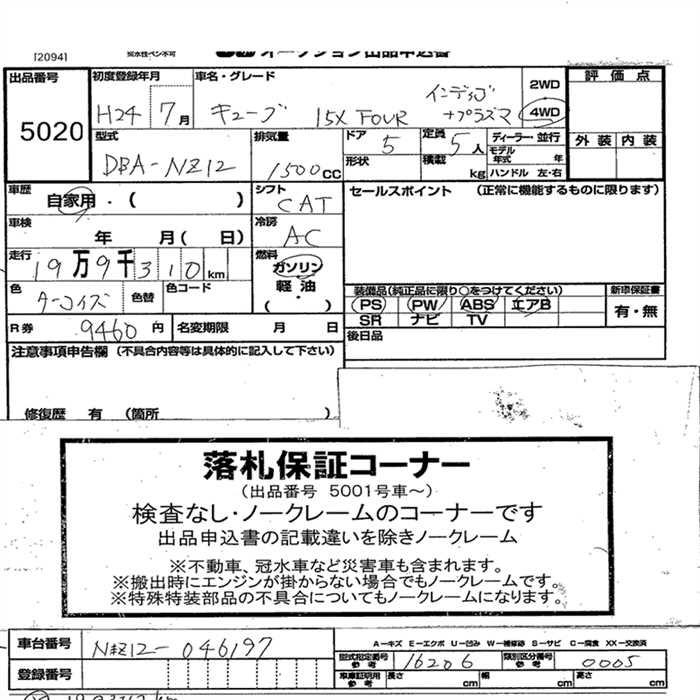 [2094]
出品番号
5020
初度登録年月
H24 7月
車名・グレード
キューブ 15X FOUR
インディゴ
+プラズマ
2WD
4WD
評価点
外装 内装
型式
DBA-NZ12
排気量
1500cc
ドア
5
形状
定員
5人
積載
kg
ディーラー・並行
モデル
年式 年
ハンドル 左・右
車歴
自家用・( )
シフト
CAT
セールスポイント (正常に機能するものに限ります)
車検
年 月( 日)
冷房
AC
走行
19万9千310km
燃料
ガソリン
軽油
( )
色
ターコイズ
色替
色コード
装備品(純正品に限り○をつけてください)
PS PW ABS エアB
SR ナビ TV
新車保証書
有・無
R券 9460円
名変期限 月 日
後日品
注意事項申告欄 (不具合内容等は具体的に記入して下さい)
修復歴 有 (箇所 )
落札保証コーナー
(出品番号 5001号車~)
検査なし・ノークレームのコーナーです
出品申込書の記載違いを除きノークレーム
※不動車、冠水車など災害車も含まれます。
※搬出時にエンジンが掛からない場合でもノークレームです。
※特殊特装部品の不具合についてもノークレームになります。
車台番号
NZ12-046197
A-キズ E-エクボ U-凹み W-補修跡 S-サビ C-腐食 XX-交換済
型式指定番号
参考
16206
類別区分番号
参考
0005
登録番号
車庫証明用
参考
長さ cm
幅 cm
高さ cm